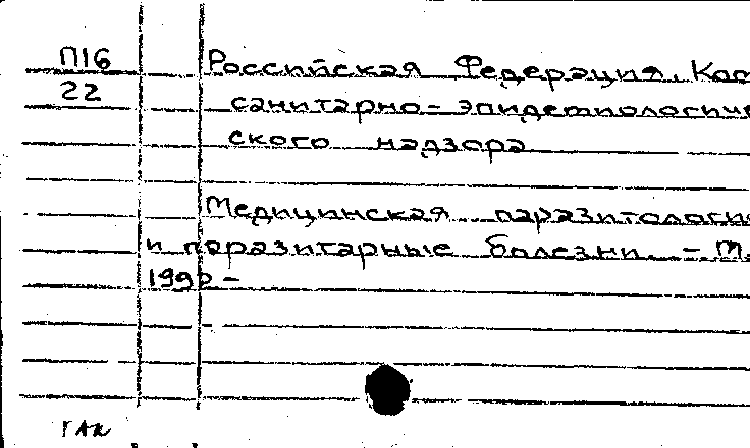 П16 Российская Федерация. Ком
22 санитарно-эпидемиологиче
ского надзора
Медицинская паразитологи
и паразитарные болезни. - М.
1992 -
ГАК